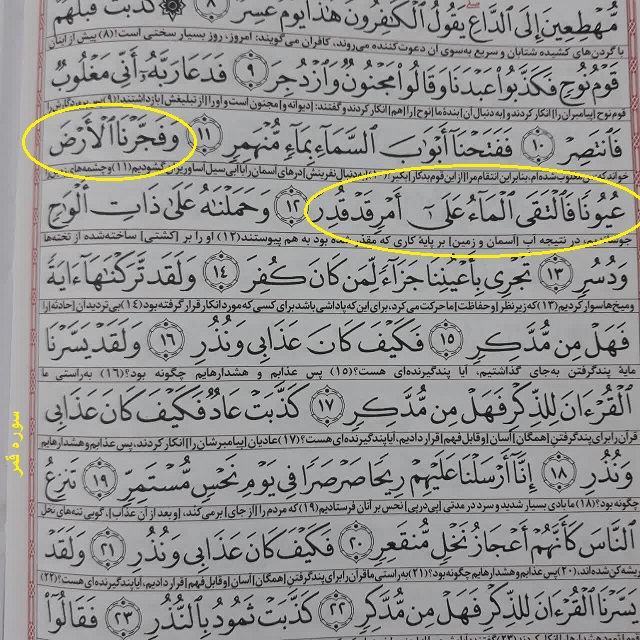 مُّهْطِعِينَ إِلَى ٱلدَّاعِ يَقُولُ ٱلْكَٰفِرُونَ هَٰذَا يَوْمٌ عَسِرٌ ٨ كَذَّبَتْ قَبْلَهُمْ
با گردن‌های کشیده شتابان و سریع به‌سوی آن دعوت‌کننده می‌روند، کافران می‌گویند: امروز، روز بسیار سختی است! (۸) پیش از اینان
قَوْمُ نُوحٍ فَكَذَّبُوا۟ عَبْدَنَا وَقَالُوا۟ مَجْنُونٌ وَٱزْدُجِرَ ٩ فَدَعَا رَبَّهُۥٓ أَنِّى مَغْلُوبٌ
قوم نوح [پیامبران را] انکار کردند و به‌دنبال آن بندهٔ ما [نوح را] [هم] انکار کردند و گفتند: [دیوانه و] مجنون است و او را [از تبلیغش] بازداشتند! (۹)
فَٱنتَصِرْ ١٠ فَفَتَحْنَآ أَبْوَٰبَ ٱلسَّمَآءِ بِمَآءٍ مُّنْهَمِرٍ ١١ وَفَجَّرْنَا ٱلْأَرْضَ
عُيُونًا فَٱلْتَقَى ٱلْمَآءُ عَلَىٰٓ أَمْرٍ قَدْ قُدِرَ ١٢ وَحَمَلْنَٰهُ عَلَىٰ ذَاتِ أَلْوَٰحٍ
در نتیجه آب [آسمان و زمین] بر پایهٔ کاری که مقدر شده بود به هم پیوستند (۱۲) او را بر [کشتی] ساخته‌شده از تخته‌ها
وَدُسُرٍ ١٣ تَجْرِى بِأَعْيُنِنَا جَزَآءً لِّمَن كَانَ كُفِرَ ١٤ وَلَقَد تَّرَكْنَٰهَآ ءَايَةً
و میخ‌ها سوار کردیم (۱۳) که زیر نظر [و حفاظت] ما حرکت می‌کرد، برای این‌که پاداشی باشد برای کسی که مورد انکار قرار گرفته بود (۱۴) بی‌تردید آن [حادثه] را
فَهَلْ مِن مُّدَّكِرٍ ١٥ فَكَيْفَ كَانَ عَذَابِى وَنُذُرِ ١٦ وَلَقَدْ يَسَّرْنَا
مایهٔ پند گرفتن به‌جای گذاشتیم، آیا پندگیرنده‌ای هست؟ (۱۵) پس عذابم و هشدارهایم چگونه بود؟ (۱۶) به‌راستی ما
ٱلْقُرْءَانَ لِلذِّكْرِ فَهَلْ مِن مُّدَّكِرٍ ١٧ كَذَّبَتْ عَادٌ فَكَيْفَ كَانَ عَذَابِى
قرآن را برای پند گرفتن [همگان] آسان [و قابل فهم] قرار دادیم، آیا پندگیرنده‌ای هست؟ (۱۷) عادیان [پیامبرشان را] انکار کردند، پس عذابم و هشدارهایم
وَنُذُرِ ١٨ إِنَّآ أَرْسَلْنَا عَلَيْهِمْ رِيحًا صَرْصَرًا فِى يَوْمِ نَحْسٍ مُّسْتَمِرٍّ ١٩ تَنزِعُ
چگونه بود؟ (۱۸) ما بادی بسیار شدید و سرد در مدتی [پی‌درپی] نحس بر آنان فرستادیم (۱۹) که مردم را [از جای] برمی‌کند، [و بعد از آن عذاب]، گویی تنه‌های نخل
ٱلنَّاسَ كَأَنَّهُمْ أَعْجَازُ نَخْلٍ مُّنقَعِرٍ ٢٠ فَكَيْفَ كَانَ عَذَابِى وَنُذُرِ ٢١ وَلَقَدْ
ریشه‌کن شده‌اند، (۲۰) پس عذابم و هشدارهایم چگونه بود؟ (۲۱) به‌راستی ما قرآن را برای پند گرفتن [همگان] آسان [و قابل فهم] قرار دادیم، آیا پندگیرنده‌ای هست؟ (۲۲)
يَسَّرْنَا ٱلْقُرْءَانَ لِلذِّكْرِ فَهَلْ مِن مُّدَّكِرٍ ٢٢ كَذَّبَتْ ثَمُودُ بِٱلنُّذُرِ ٢٣ فَقَالُوٓا۟
سوره قمر